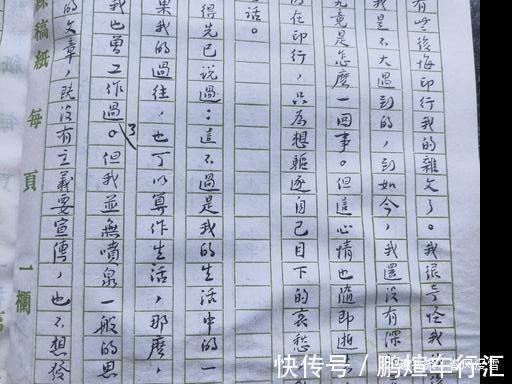 有些後悔印行我的雜文了。我很奇怪我
我是不大遇到的，到如今，我還沒有深
究竟是怎麼一回事。但這心情也隨即逝
的在印行，只為想驅逐自己目下的哀愁
話。
得先已說過：這不過是我的生活中的一
果我的過往，也可以算作生活，那麼，
我也曾工作過了。但我並無噴泉一般的思
的文章，既沒有主義要宣傳，也不想發
稿紙 每頁 一欄
快传号／鹏煊车行汇